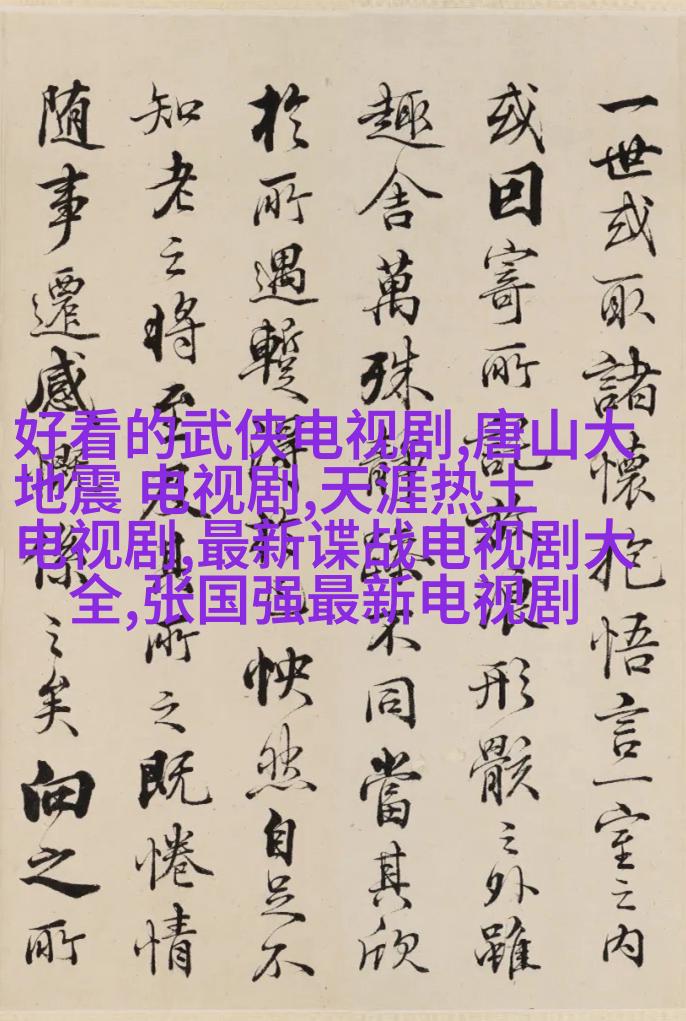 一世或取諸懷抱悟言一室之内
或因寄所託放浪形骸之外雖
趣舍萬殊靜躁不同當其欣
於所遇蹔得於己怏然自足不
知老之將至及其所之既惓情
随事遷感慨係之矣向之所
好看的武侠电视剧,唐山大
地震 电视剧,天涯热土
电视剧,最新谍战电视剧大
全,张国强最新电视剧